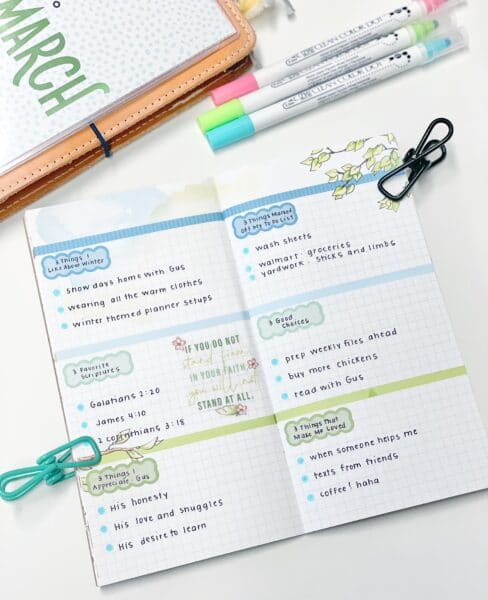 MARCH
CLEAN COLOR DOT
CLEAN COLOR DOT
3 Things I
Like About Winter
snow days home with Gus
wearing all the warm clothes
winter themed planner setups
3 Favorite
Scriptures
Galatians 2:20
James 4:10
2 corinthians 3:18
IF YOU DO NOT
stand firm
IN YOUR FAITH
you will not
STAND AT ALL.
3 Things I
Appreciate Gus
His honesty
His love and snuggles
His desire to learn
3 Things Marked
Off My To Do List
wash sheets
walmart · groceries
yardwork · sticks and limbs
3 Good
Choices
prep weekly files ahead
buy more chickens
read with Gus
3 Things That
Make Me Loved
when someone helps me
texts from friends
coffee! haha